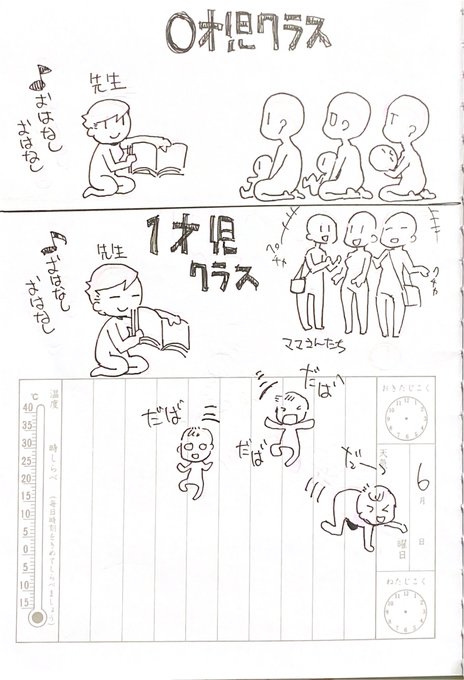 0才児クラス
先生
♪おはなし
おはなし
1才児
クラス
先生
♪おはなし
おはなし
ペチャ
クチャ
ママさんたち
だばば
だば
だば
だーっ
おきたじこく
天
6
月
日
曜日
ねたじこく
温度
時しらべ
(毎日時刻をきめてしらべましょう)
℃
40
35
30
25
20
15
10
5
0
5
10
15